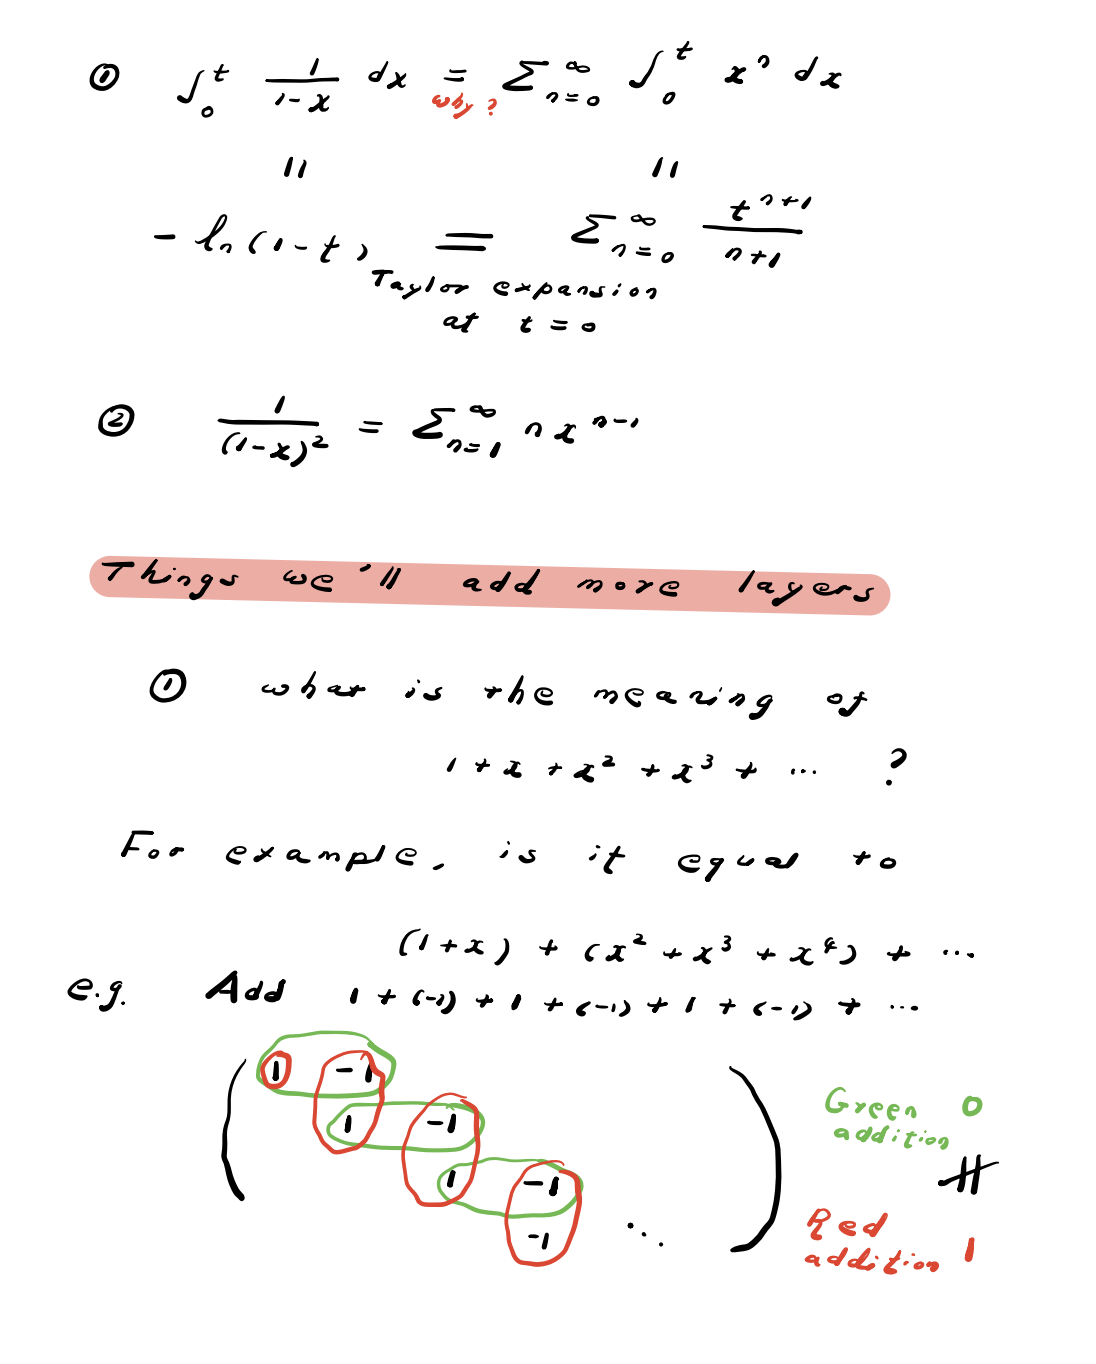 ① ∫₀ᵗ 1/(1-x) dx = Σₙ₌₀^∞ ∫₀ᵗ xⁿ dx
why?
|| ||
- ln(1-t) = Σₙ₌₀^∞ tⁿ⁺¹/(n+1)
Taylor expansion
at t = 0
② 1/(1-x)² = Σₙ₌₁^∞ n xⁿ⁻¹
Things we'll add more layers
① what is the meaning of
1 + x + x² + x³ + ... ?
For example, is it equal to
(1+x) + (x² + x³ + x⁴) + ...
e.g. Add 1 + (-1) + 1 + (-1) + 1 + (-1) + ...
1 -1
1 -1
1 -1
-1 ...
Green 0
addition
≠
Red
addition 1